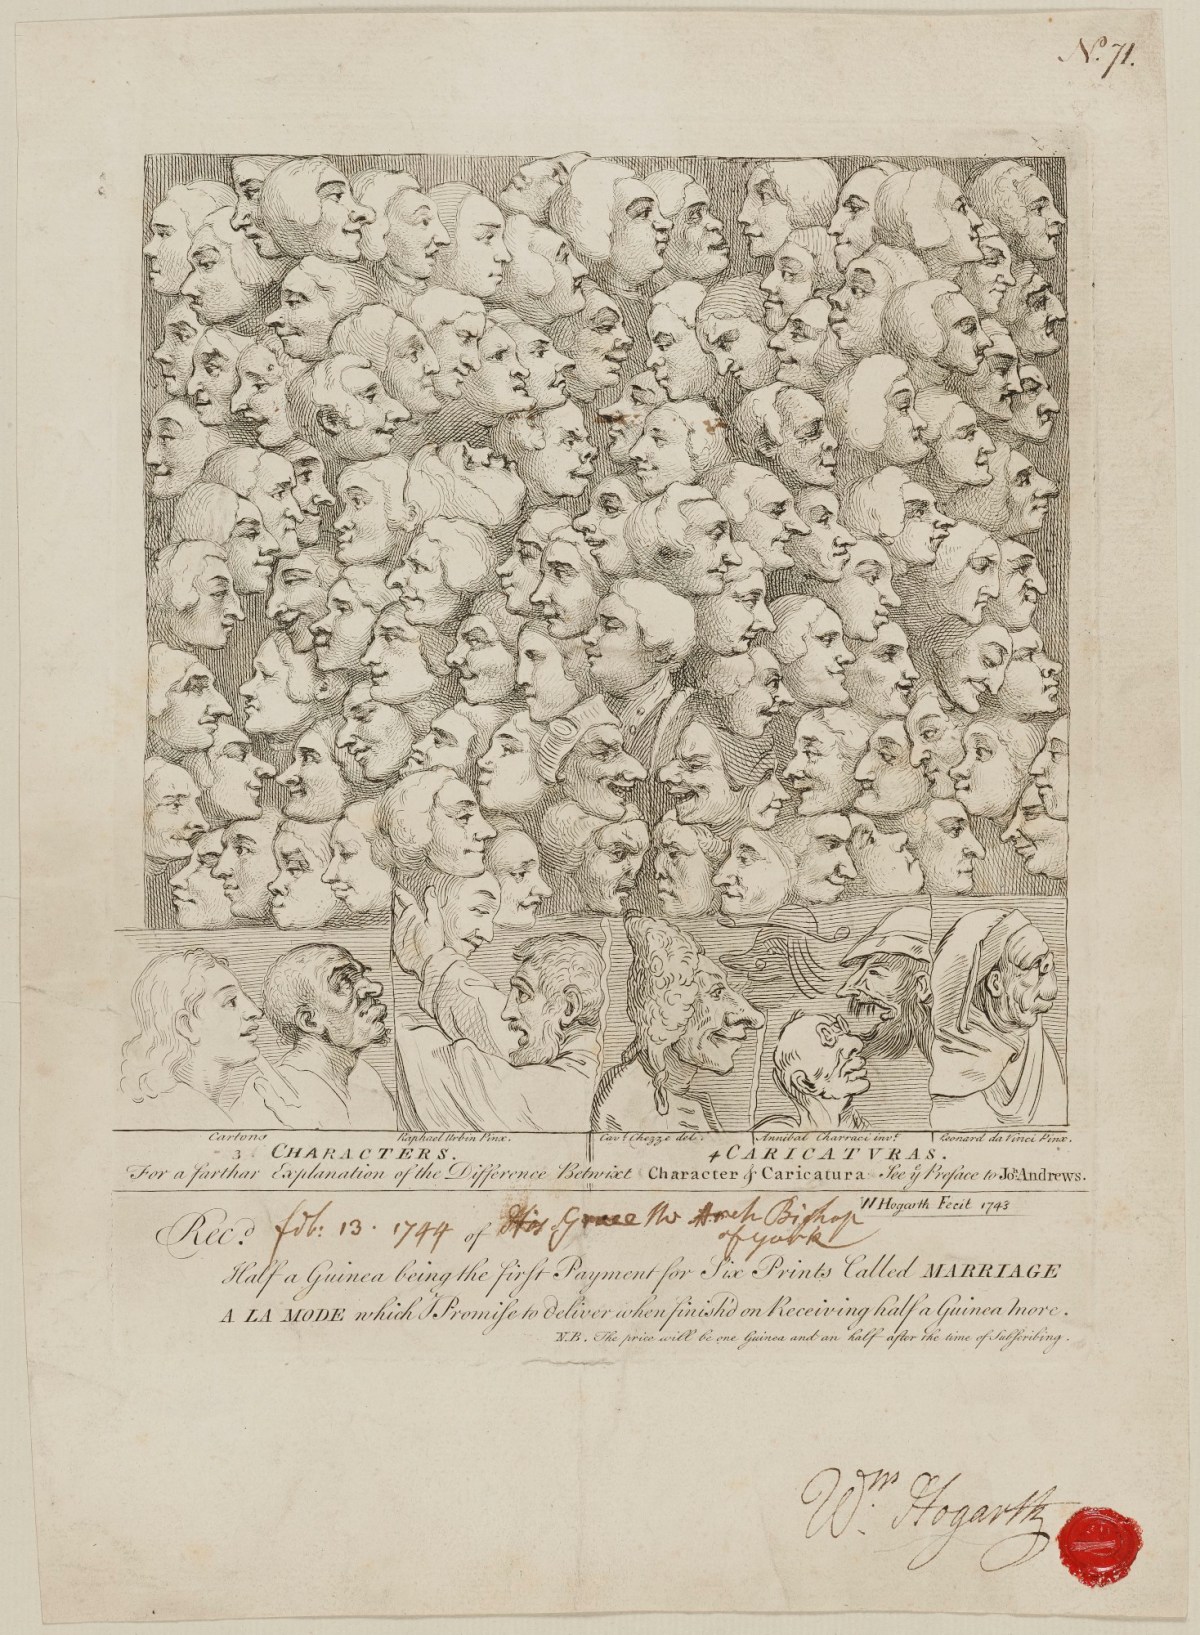 No. 71.
Cartons Raphael Urbin Pinx. Cavr. Chezze del. Annibal Charraci invt. Leonard da Vinci Pinx.
3 CHARACTERS. 4 CARICATVRAS.
For a farthar Explanation of the Difference Betwixt Character & Caricatura See ye Preface to Joh. Andrews.
W Hogarth Fecit 1743
Recd. feb: 13. 1744 of His Grace the Arch Bishop
of york
Half a Guinea being the first Payment for Six Prints Called MARRIAGE
A LA MODE which I Promise to deliver when finish'd on Receiving half a Guinea more.
N.B. The price will be one Guinea and an half after the time of Subscribing.
Wm. Hogarth